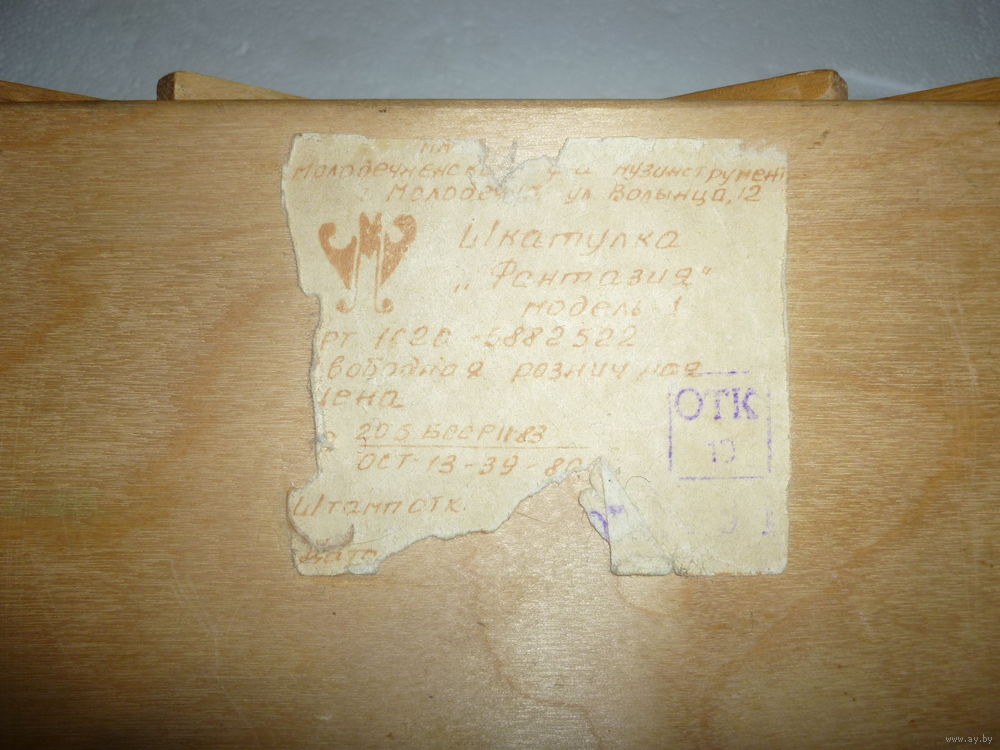 мм
Молодечненск
музинструмент
ул Волынца, 12
Шкатулка
„Фантазия"
модель 1
рт 1020 -5882522
вободная розничная
цена
ОТК
10
205 БССР 1183
ОСТ-13-39-80
Штамп отк.
www.ay.by